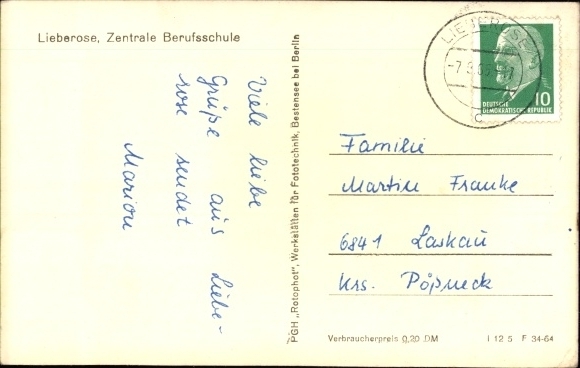 Lieberose, Zentrale Berufsschule
Viele liebe
Grüße aus Liebe-
rose sendet
Marion
PGH „Rotophot", Werkstätten für Fototechnik, Bestensee bei Berlin
LIEBEROSE
DEUTSCHE
DEMOKRATISCHE REPUBLIK
10
Familie
Martin Franke
6841 Laskau
Krs. Pößneck
Verbraucherpreis 0,20 DM
I 12 5 F 34-64